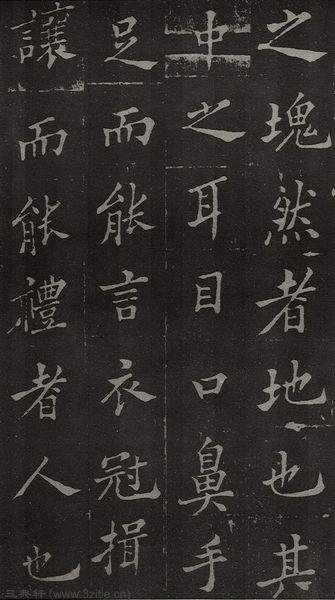 之塊然者地也其
中之耳目口鼻手
足而能言衣冠揖
讓而能禮者人也
三典轩(www.3zitie.cn)